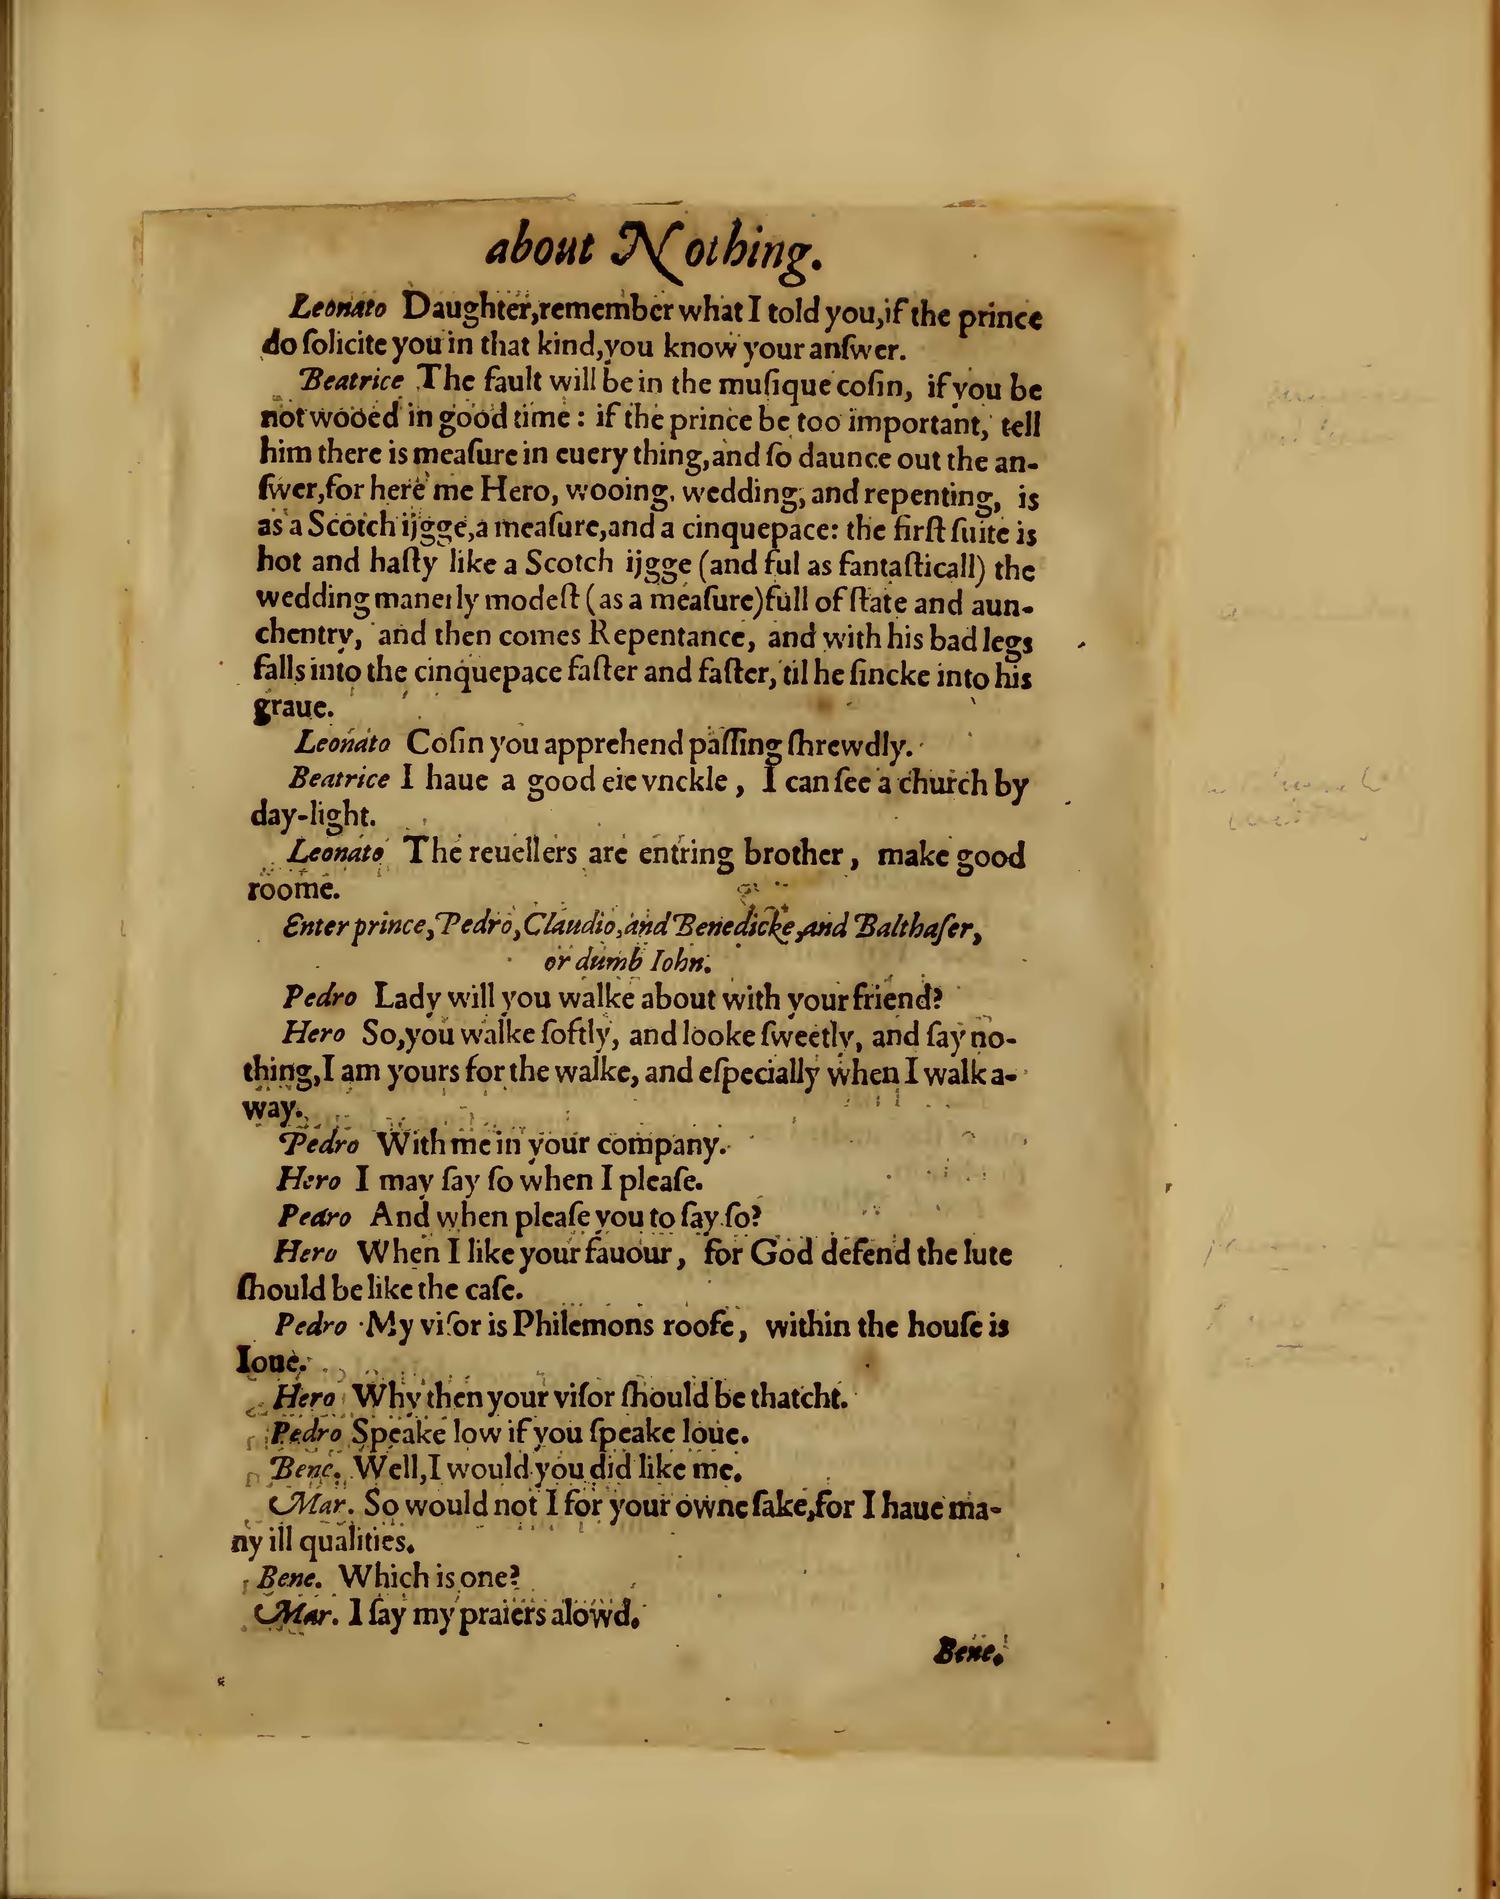 about Nothing.
Leonato Daughter,remember what I told you,if the prince
do ſolicite you in that kind,you know your anſwer.
Beatrice The fault will be in the muſique coſin, if you be
not wooed in good time : if the prince be too important, tell
him there is meaſure in euery thing,and ſo daunce out the an-
ſwer,for here me Hero, wooing, wedding, and repenting, is
as a Scotch ijgge,a meaſure,and a cinquepace: the firſt ſuite is
hot and haſty like a Scotch ijgge (and ful as fantaſticall) the
wedding manerly modeſt (as a meaſure)full of ſtate and aun-
chentry, and then comes Repentance, and with his bad legs
falls into the cinquepace faſter and faſter, til he ſincke into his
graue.
Leonato Coſin you apprehend paſſing ſhrewdly.
Beatrice I haue a good eie vnckle , I can ſee a church by
day-light.
Leonato The reuellers are entring brother , make good
roome.
Enter prince, Pedro, Claudio, and Benedicke, and Balthaſer,
or dumb Iohn.
Pedro Lady will you walke about with your friend?
Hero So,you walke ſoftly, and looke ſweetly, and ſay no-
thing,I am yours for the walke, and eſpecially when I walk a-
way.
Pedro With me in your company.
Hero I may ſay ſo when I pleaſe.
Pedro And when pleaſe you to ſay ſo?
Hero When I like your fauour , for God defend the lute
ſhould be like the caſe.
Pedro My viſor is Philemons roofe, within the houſe is
Ioue.
Hero Why then your viſor ſhould be thatcht.
Pedro Speake low if you ſpeake loue.
Bene. Well,I would you did like me.
Mar. So would not I for your owne ſake,for I haue ma-
ny ill qualities.
Bene. Which is one?
Mar. I ſay my praiers alowd.
Bene.